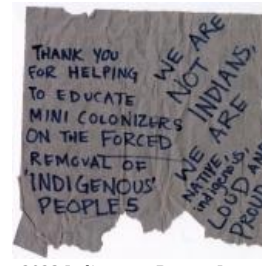 THANK YOU
FOR HELPING
TO EDUCATE
MINI COLONIZERS
ON THE FORCED
REMOVAL OF
'INDIGENOUS'
PEOPLE5
WE ARE
NOT
INDIANS,
WE ARE
NATIVE,
indigenous,
LOUD AND
PROUD